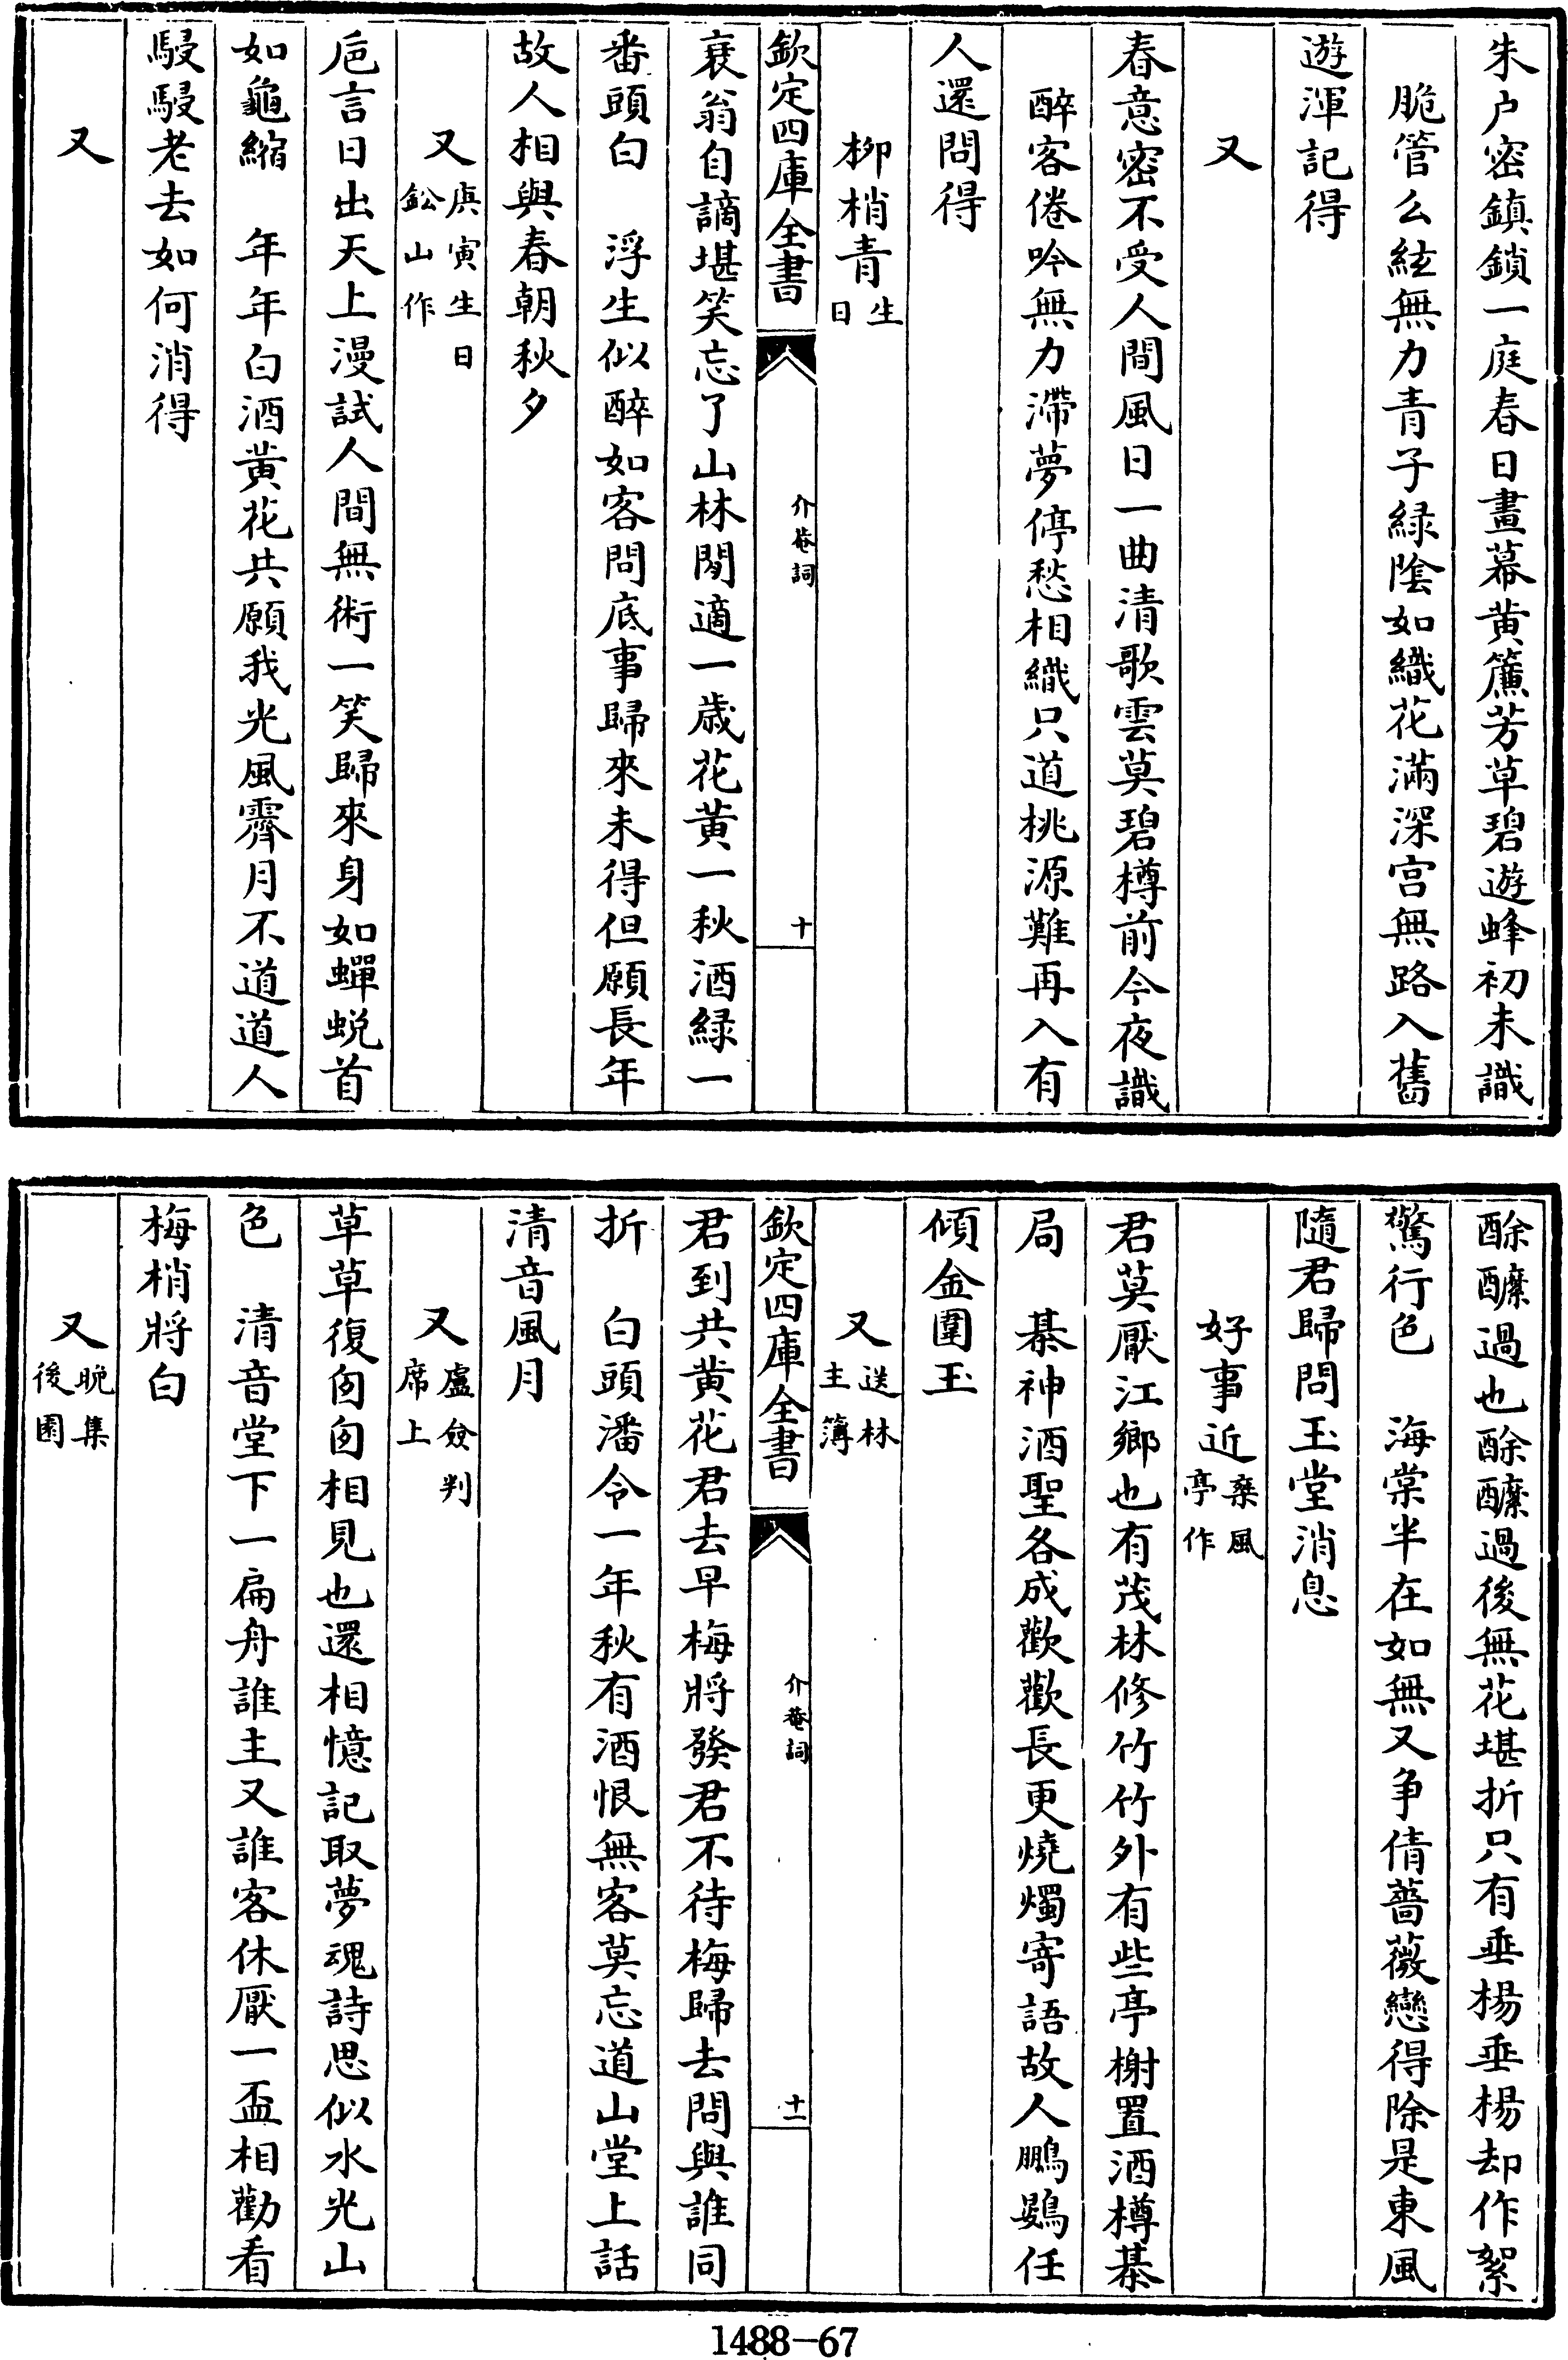 朱户密鎮鎖一庭春日畫幕黄簾芳草碧遊蜂初未識
脆管么絃無力青子緑陰如織花滿深宫無路入舊
遊渾記得
又
春意密不受人間風日一曲清歌雲莫碧樽前今夜識
醉客倦吟無力滯夢停愁相織只道桃源難再入有
人還問得
柳梢青生日
欽定四庫全書
介菴詞
十
衰翁自謫堪笑忘了山林閒適一歳花黄一秋酒緑一
番頭白　浮生似醉如客問底事歸來未得但願長年
故人相與春朝秋夕
又庚寅生日鈆山作
巵言日出天上漫試人間無術一笑歸來身如蟬蜕首
如龜縮　年年白酒黄花共願我光風霽月不道道人
駸駸老去如何消得
又
酴醾過也酴醾過後無花堪折只有垂楊垂楊却作絮
驚行色　海棠半在如無又争倩薔薇戀得除是東風
隨君歸問玉堂消息
好事近棄風亭作
君莫厭江鄉也有茂林修竹竹外有些亭榭置酒樽棊
局　棊神酒聖各成歡歡長更燒燭寄語故人鵬鷃任
傾金圍玉
又送林主簿
欽定四庫全書
介菴詞
十一
君到共黄花君去早梅將發君不待梅歸去問與誰同
折　白頭潘令一年秋有酒恨無客莫忘道山堂上話
清音風月
又盧僉判席上
草草復匆匆相見也還相憶記取夢魂詩思似水光山
色　清音堂下一扁舟誰主又誰客休厭一盃相勸看
梅梢將白
又晚集後園
1488-67